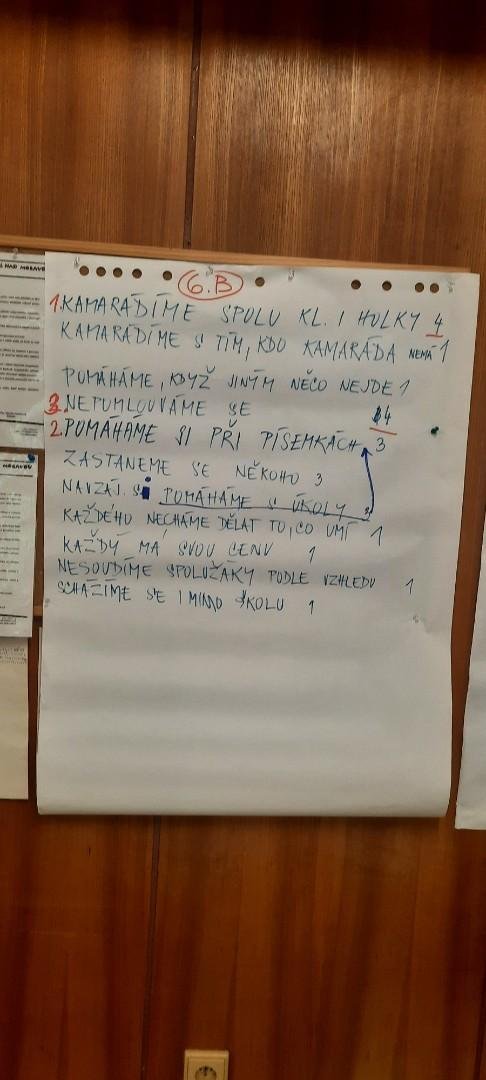 6.B
1. KAMARÁDÍME SPOLU KL. I HOLKY 4
KAMARÁDÍME S TÍM, KDO KAMARÁDA NEMÁ 1
POMÁHÁME, KDYŽ JINÝM NĚCO NEJDE 1
3. NEPOMLOUVÁME SE 4
2. POMÁHÁME SI PŘI PÍSEMKÁCH 3
ZASTANEME SE NĚKOHO 3
NAVZÁJ. SI POMÁHÁME S ÚKOLY
KAŽDÉHO NECHÁME DĚLAT TO, CO UMÍ 1
KAŽDÝ MÁ SVOU CENU 1
NESOUDÍME SPOLUŽÁKY PODLE VZHLEDU 1
SCHÁZÍME SE I MIMO ŠKOLU 1
NAD MORAVOU
MORAVOU